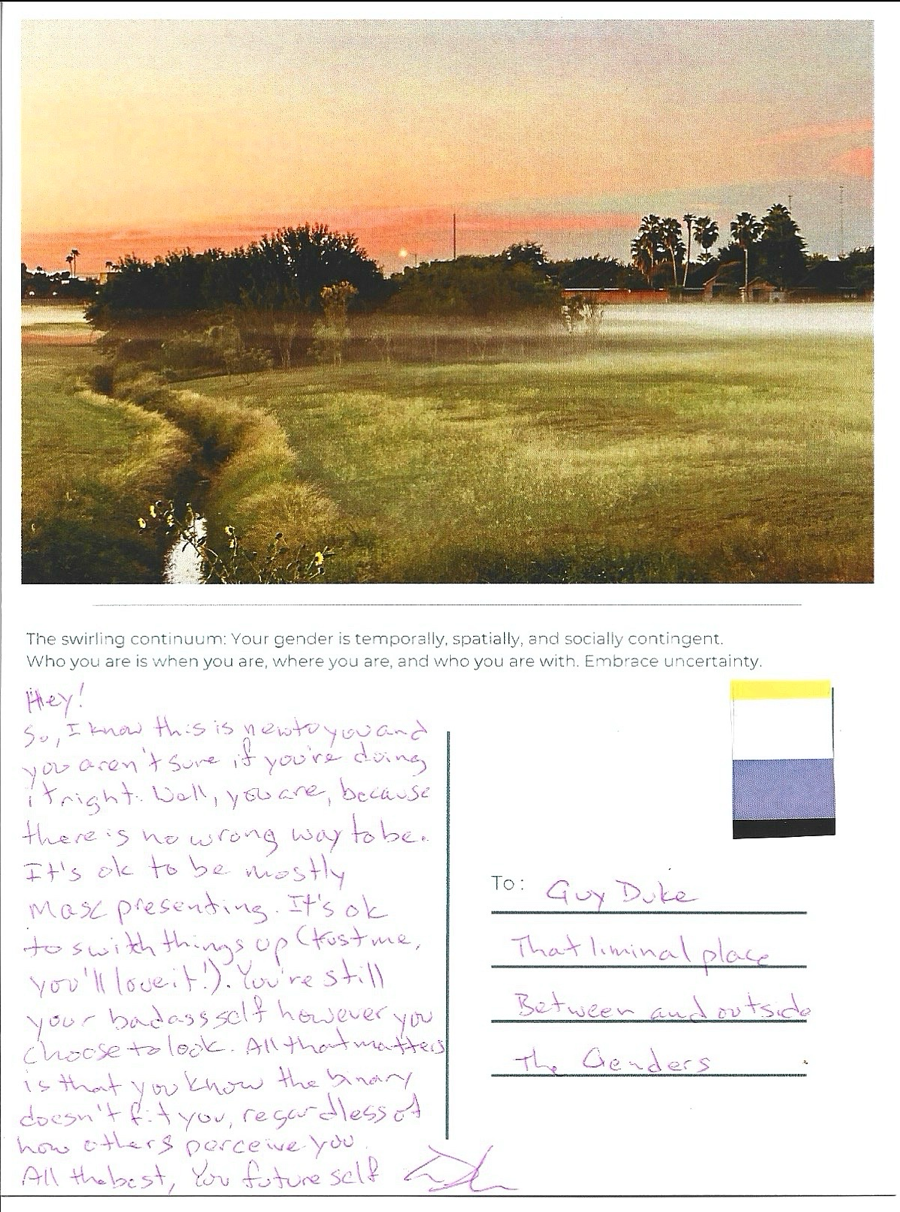 The swirling continuum: Your gender is temporally, spatially, and socially contingent.
Who you are is when you are, where you are, and who you are with. Embrace uncertainty.
Hey!
So, I know this is new to you and
you aren't sure if you're doing
it right. Well, you are, because
there is no wrong way to be.
It's ok to be mostly
masc presenting. It's ok
to swith things up (trust me,
you'll love it!). You're still
your badass self however you
choose to look. All that matters
is that you know the binary
doesn't fit you, regardless of
how others perceive you.
All the best, You future self
To: Guy Duke
That liminal place
Between and outside
The Genders